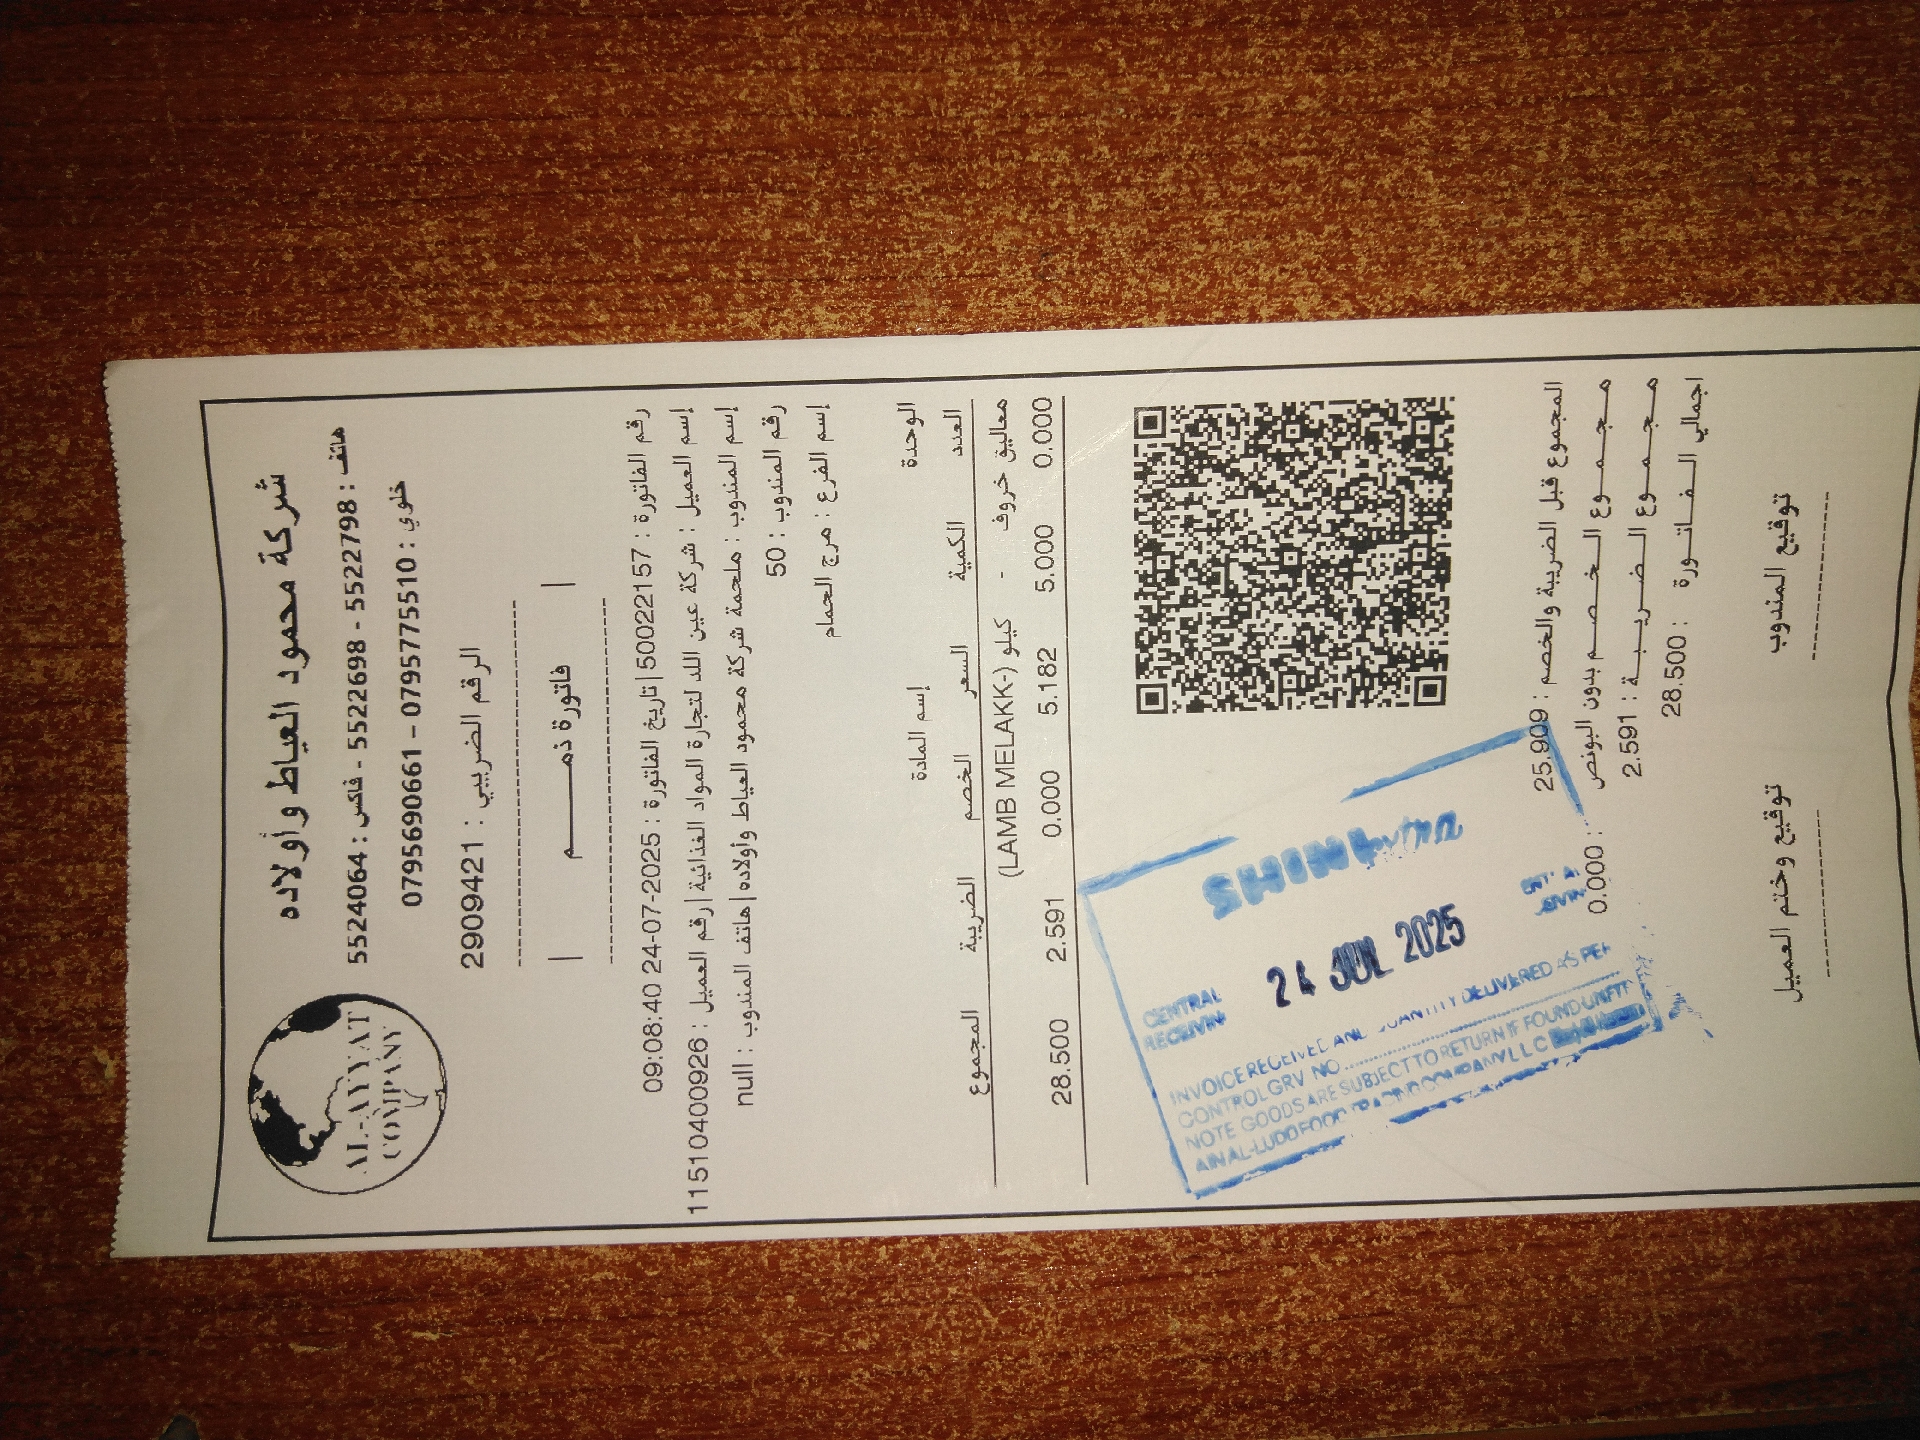 AL-AYYAT
COMPANY
شركة محمود العياط وأولاده
هاتف : 5522798 - 5522698 - فاكس : 5524064
خلوي : 0795775510 – 0795690661
الرقم الضريبي : 2909421
| فاتورة ذمــــــم |
رقم الفاتورة : 50022157|تاريخ الفاتورة : 2025-07-24 09:08:40
إسم العميل : شركة عين اللد لتجارة المواد الغذائية |رقم العميل : 11510400926
إسم المندوب : ملحمة شركة محمود العياط وأولاده|هاتف المندوب : null
رقم المندوب : 50
إسم الفرع : مرج الحمام
الوحدة إسم المادة
العدد الكمية السعر الخصم الضريبة المجموع
معاليق خروف - كيلو (-LAMB MELAKK)
0.000 5.000 5.182 0.000 2.591 28.500
المجموع قبل الضريبة والخصم : 25.909
مـجـمـوع الـخـصـم بدون البونص : 0.000
مـجـمـوع الـضـريـبـة : 2.591
اجمالي الـفـاتـورة : 28.500
CENTRAL
24 JUL 2025
INVOICE RECEIVED AND QUANTITY DELIVERED AS PER
CONTROL GRV NO
NOTE GOODS ARE SUBJECT TO RETURN IF FOUND UNFIT
AIN AL-LUDD FOOD TRADING COMPANY LLC
توقيع المندوب توقيع وختم العميل